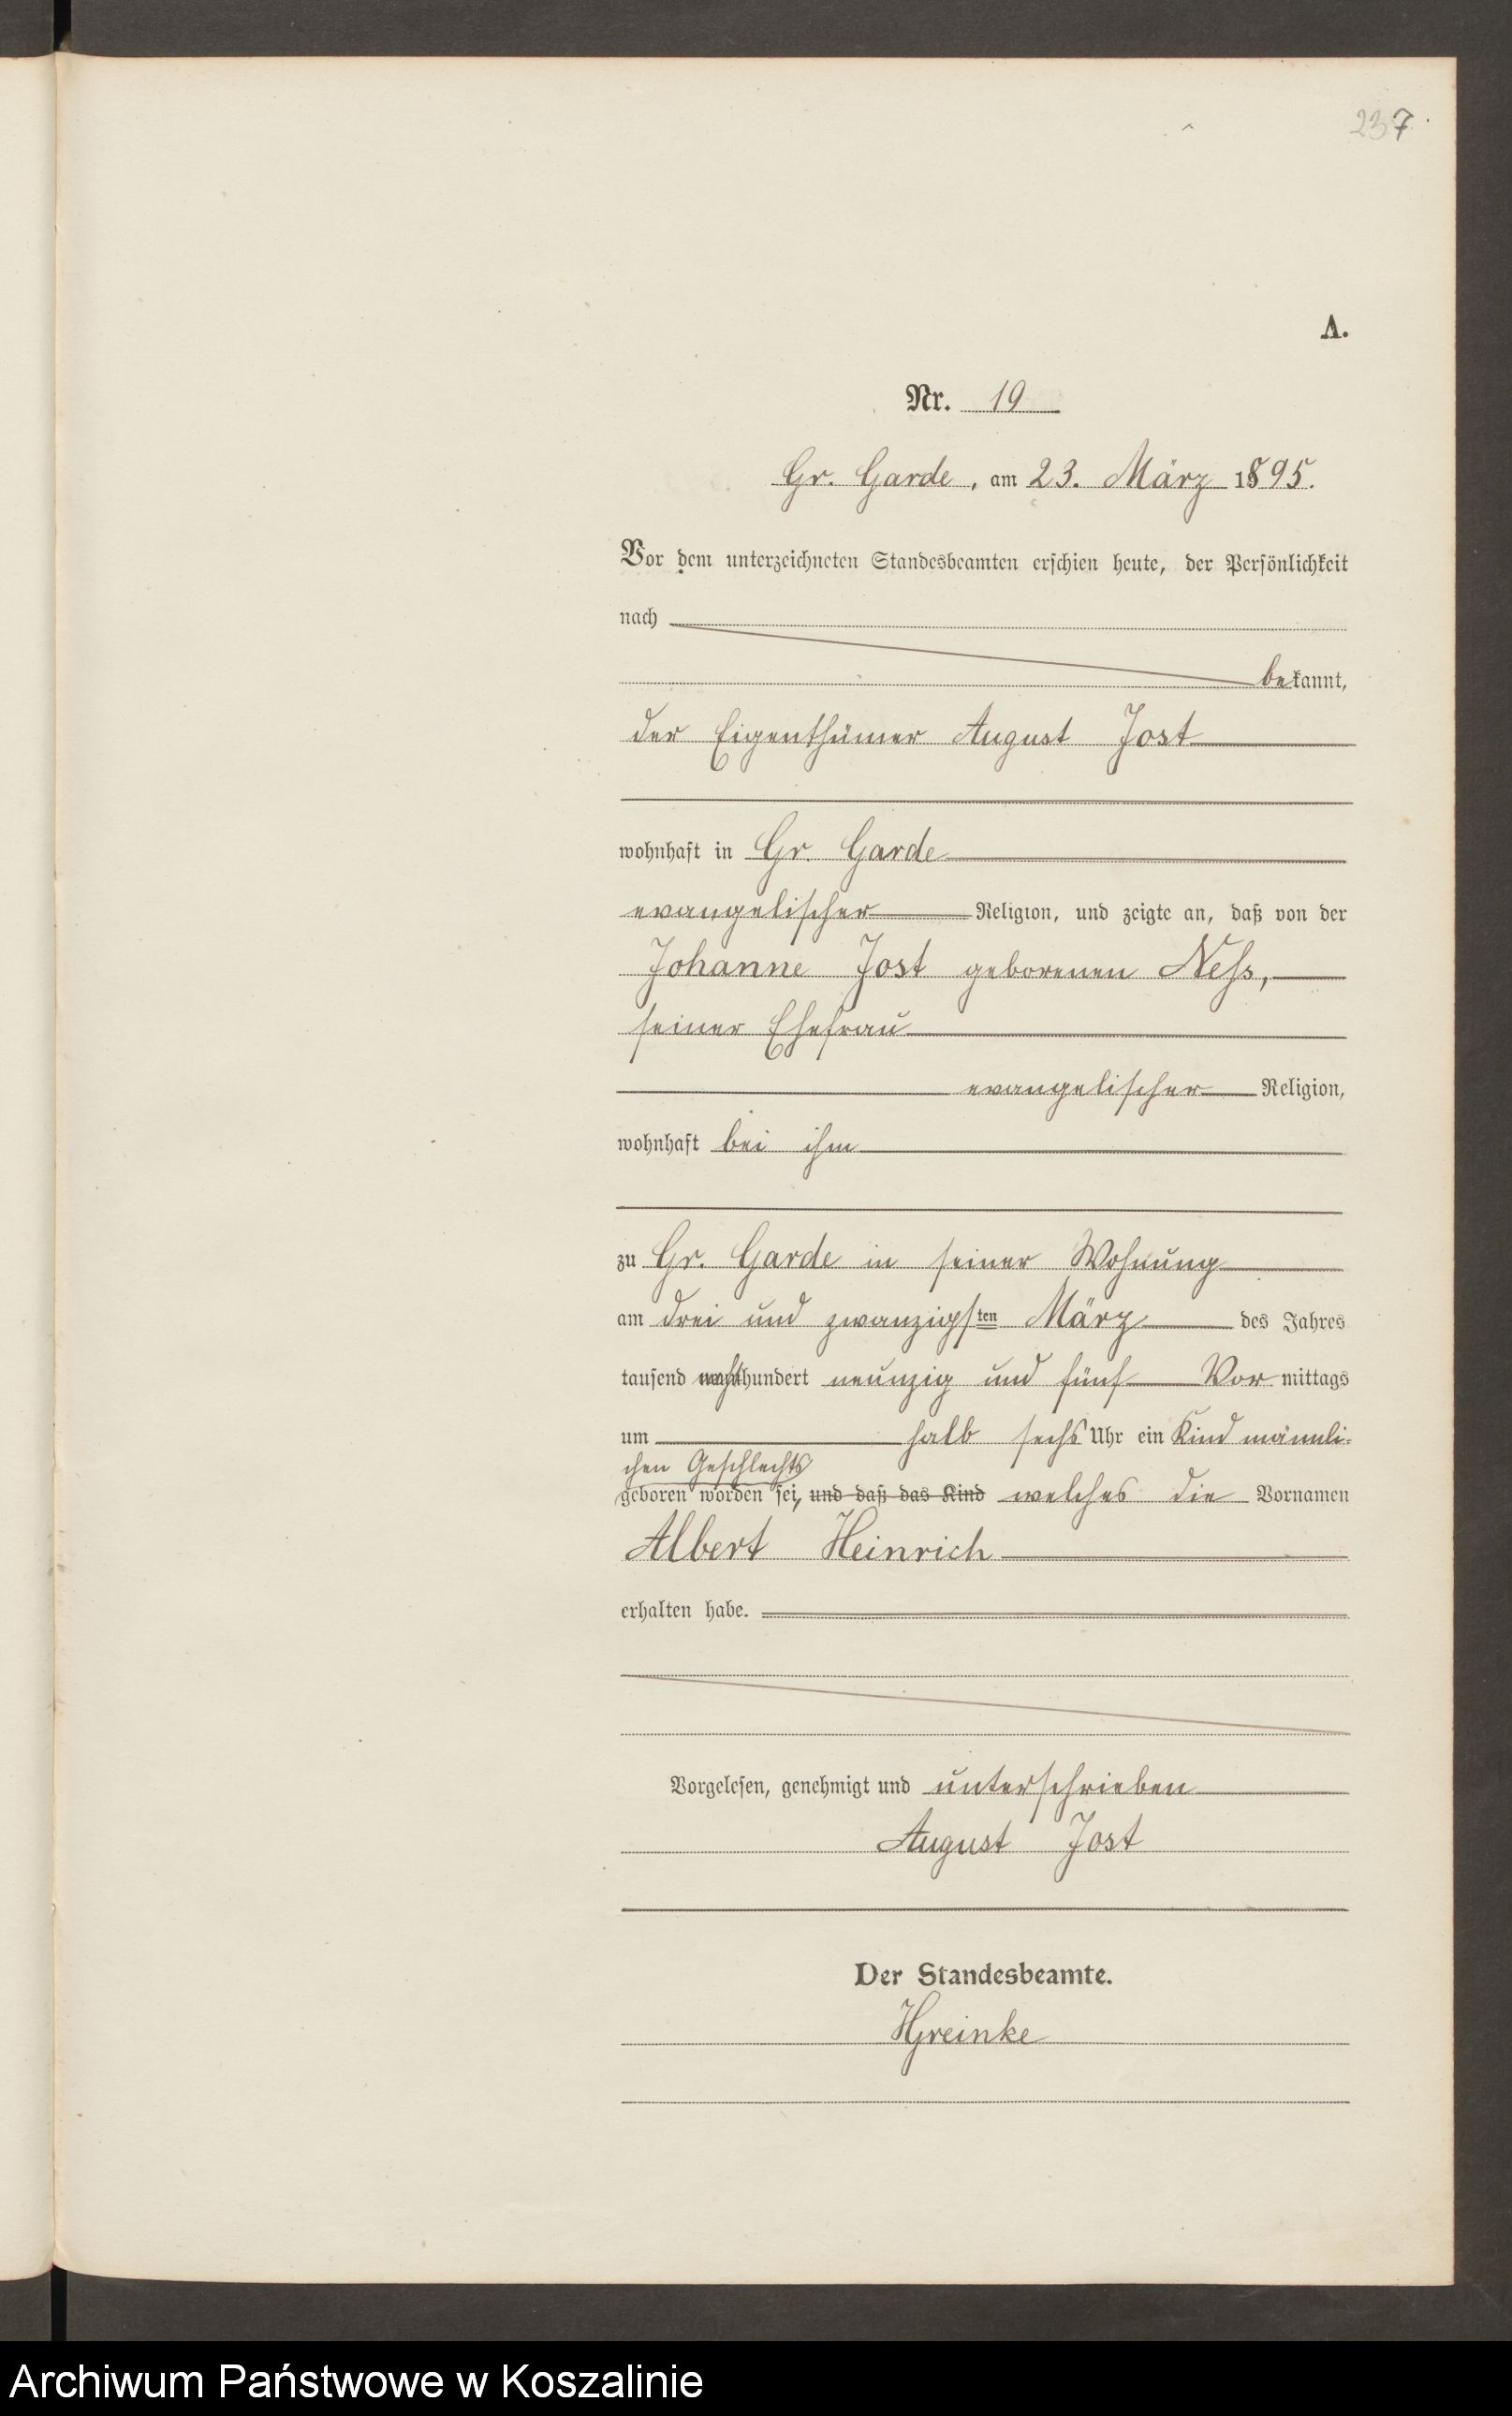 237
A.
Nr. 19
Gr. Garde, am 23. März 1895.
Vor dem unterzeichneten Standesbeamten erschien heute, der Persönlichkeit
nach
bekannt,
der Eigenthümer August Jost
wohnhaft in Gr. Garde
evangelischer Religion, und zeigte an, daß von der
Johanne Jost geborenen Neß,
seiner Ehefrau
evangelischer Religion,
wohnhaft bei ihm
zu Gr. Garde in seiner Wohnung
am drei und zwanzigsten März des Jahres
tausend achthundert neunzig und fünf Vormittags
um halb sechs Uhr ein Kind männli-
chen Geschlechts
geboren worden sei, und daß das Kind welches die Vornamen
Albert Heinrich
erhalten habe.
Vorgelesen, genehmigt und unterschrieben
August Jost
Der Standesbeamte.
HGreinke
Archiwum Państwowe w Koszalinie